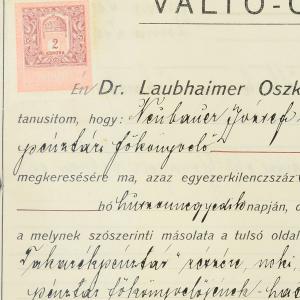 VÁLTÓ-Ó
2
KORONA
Én Dr. Laubhaimer Oszk
tanusitom, hogy: Neubauer József
pénztári főkönyvelő
megkeresésére ma, azaz egyezerkilenczszáz
bó huszonnegyedik napján, d
a melynek szószerinti másolata a tulsó oldal
Takarékpénztár" részére, neki
pénztár főkönyvelőjének